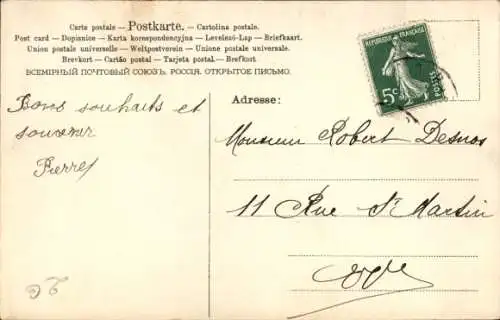 Carte postale – Postkarte. – Cartolina postale.
Post card – Dopisnice – Karta korespondencyjna – Levelező-Lap – Briefkaart.
Union postale universelle – Weltpostverein – Unione postale universale.
Brevkort – Cartão postal – Tarjeta postal.– Brefkort
ВСЕМІРНЫЙ ПОЧТОВЫЙ СОЮЗЪ. РОССІЯ. ОТКРЫТОЕ ПИСЬМО.
REPUBLIQUE FRANÇAISE
5c
POSTES
Bons souhaits et
souvenir
Pierre
Adresse:
Monsieur Robert Desnos
11 Rue St Martin